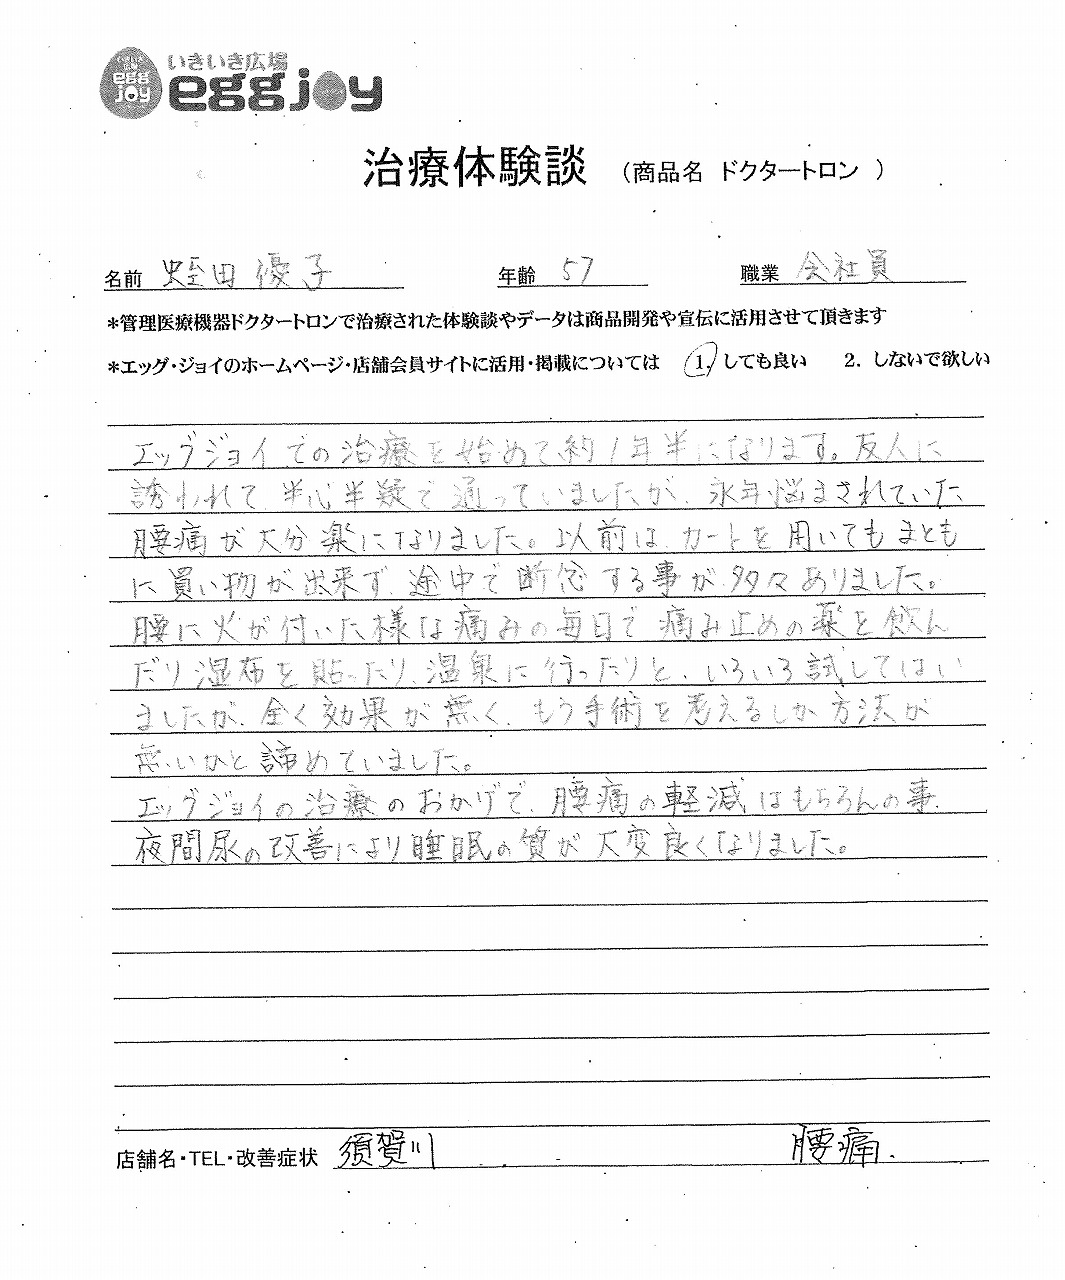 いきいき広場
egg joy
eggjoy
治療体験談 （商品名 ドクタートロン ）
名前 蛭田優子 年齢 57 職業 会社員
＊管理医療機器ドクタートロンで治療された体験談やデータは商品開発や宣伝に活用させて頂きます
＊エッグ・ジョイのホームページ・店舗会員サイトに活用・掲載については 1. しても良い 2. しないで欲しい
エッグジョイでの治療を始めて約1年半になります。友人に
誘われて半心半疑で通っていましたが、永年悩まされていた
腰痛が大分楽になりました。以前は、カートを用いてもまとも
に買い物が出来ず、途中で断念する事が多々ありました。
腰に火が付いた様な痛みの毎日で痛み止めの薬を飲ん
だり湿布を貼ったり、温泉に行ったりと、いろいろ試してはい
ましたが、全く効果が無く、もう手術を考えるしか方法が
無いかと諦めていました。
エッグジョイの治療のおかげで、腰痛の軽減はもちろんの事、
夜間尿の改善により睡眠の質が大変良くなりました。
店舗名・TEL・改善症状 須賀川 腰痛.